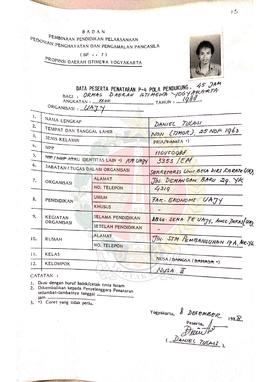 15
BADAN
PEMBINAAN PENDIDIKAN PELAKSANAAN
PEDOMAN PENGHAYATAN DAN PENGAMALAN PANCASILA
( BP - 7 )
PROPINSI DAERAH ISTIMEWA YOGYAKARTA
DATA PESERTA PENATARAN P-4 POLA PENDUKUNG, 45 JAM
BAGI : ORMAS DAERAH ISTIMEWA YOGYAKARTA
ANGKATAN : TAHUN : 1988
ORGANISASI : UAJY
1. NAMA LENGKAP DANIEL TUKASI
2. TEMPAT DAN TANGGAL LAHIR (TIMOR), 25 NOP 1963
3. JENIS KELAMIN PRIA/WANITA *)
4. NPP
5. NIP / NRP ATAU IDENTITAS LAIN *) 3353 / EM
6. JABATAN/TUGAS DALAM ORGANISASI SEKRETARIS UNIT
7. ORGANISASI ALAMAT JLN DEMANGAN BARU 29 YK
NO. TELEPON 4219
8. PENDIDIKAN UMUM FAK. EKONOMI UAJY
KHUSUS
9. KEGIATAN ORGANISASI SELAMA PENDIDIKAN SENA FE UAJY,
SETELAH PENDIDIKAN -
10. RUMAH ALAMAT JLN STM PEMBANGUNAN YK
NO. TELEPON -
11. KELAS NUSA / BANGSA / BAHASA *)
12. KELOMPOK NUSA II
CATATAN :
1. Diisi dengan huruf balok/cetak tinta hitam
2. Dikembalikan kepada Penyelenggara Penataran
selambat-lambatnya tanggal
jam
3. *) Coret yang tidak perlu.
Yogyakarta, 8 DESEMBER 1988
Peserta,
( DANIEL TUKASI )